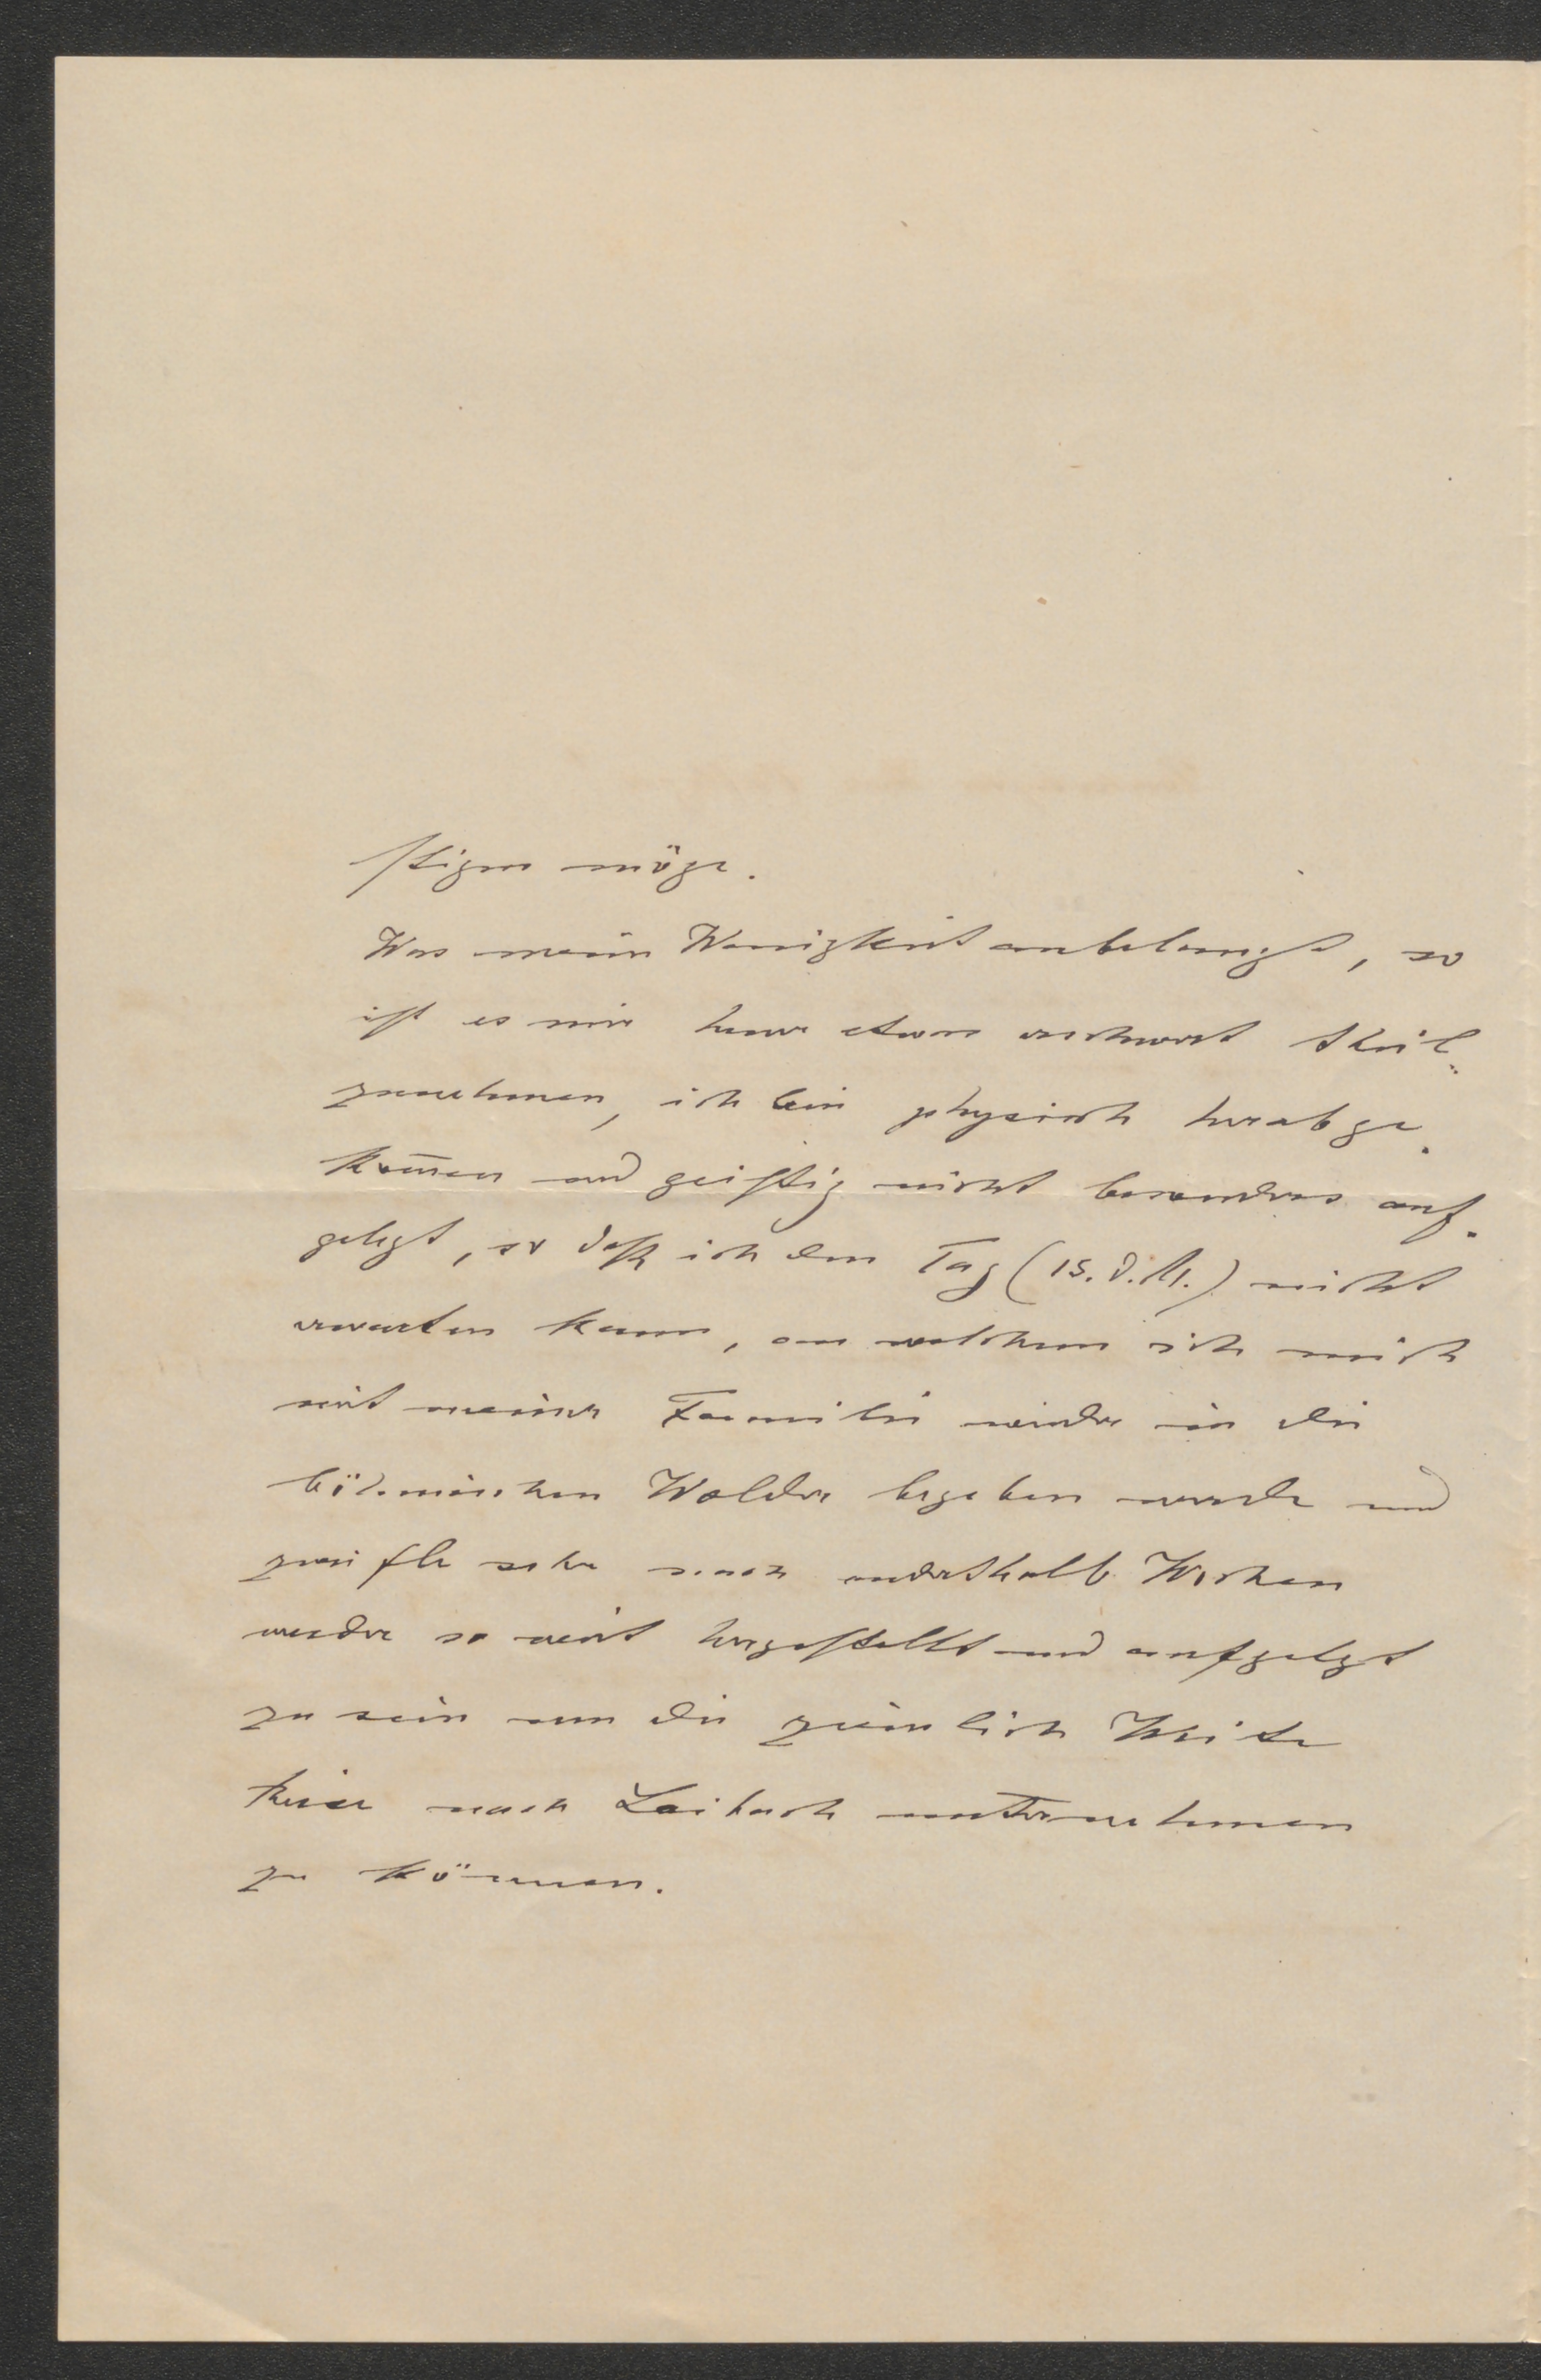 stigen möge.
Was meine Wenigkeit anbelangt, so
ist es mir heuer etwas erschwert theil-
zunehmen, ich bin physisch herabge-
kom̅en und geistig nicht besonders auf-
gelegt, so daß ich den Tag (15. d. M.) nicht
erwarten kann, an welchem ich mich
mit meiner Familie wieder in die
böhmischen Wälder begeben werde und
zweifle sehr nach anderthalb Wochen
wieder so weit hergestellt und aufgelegt
zu sein um die ziemlich weite
Reise nach Laibach unternehmen
zu können.